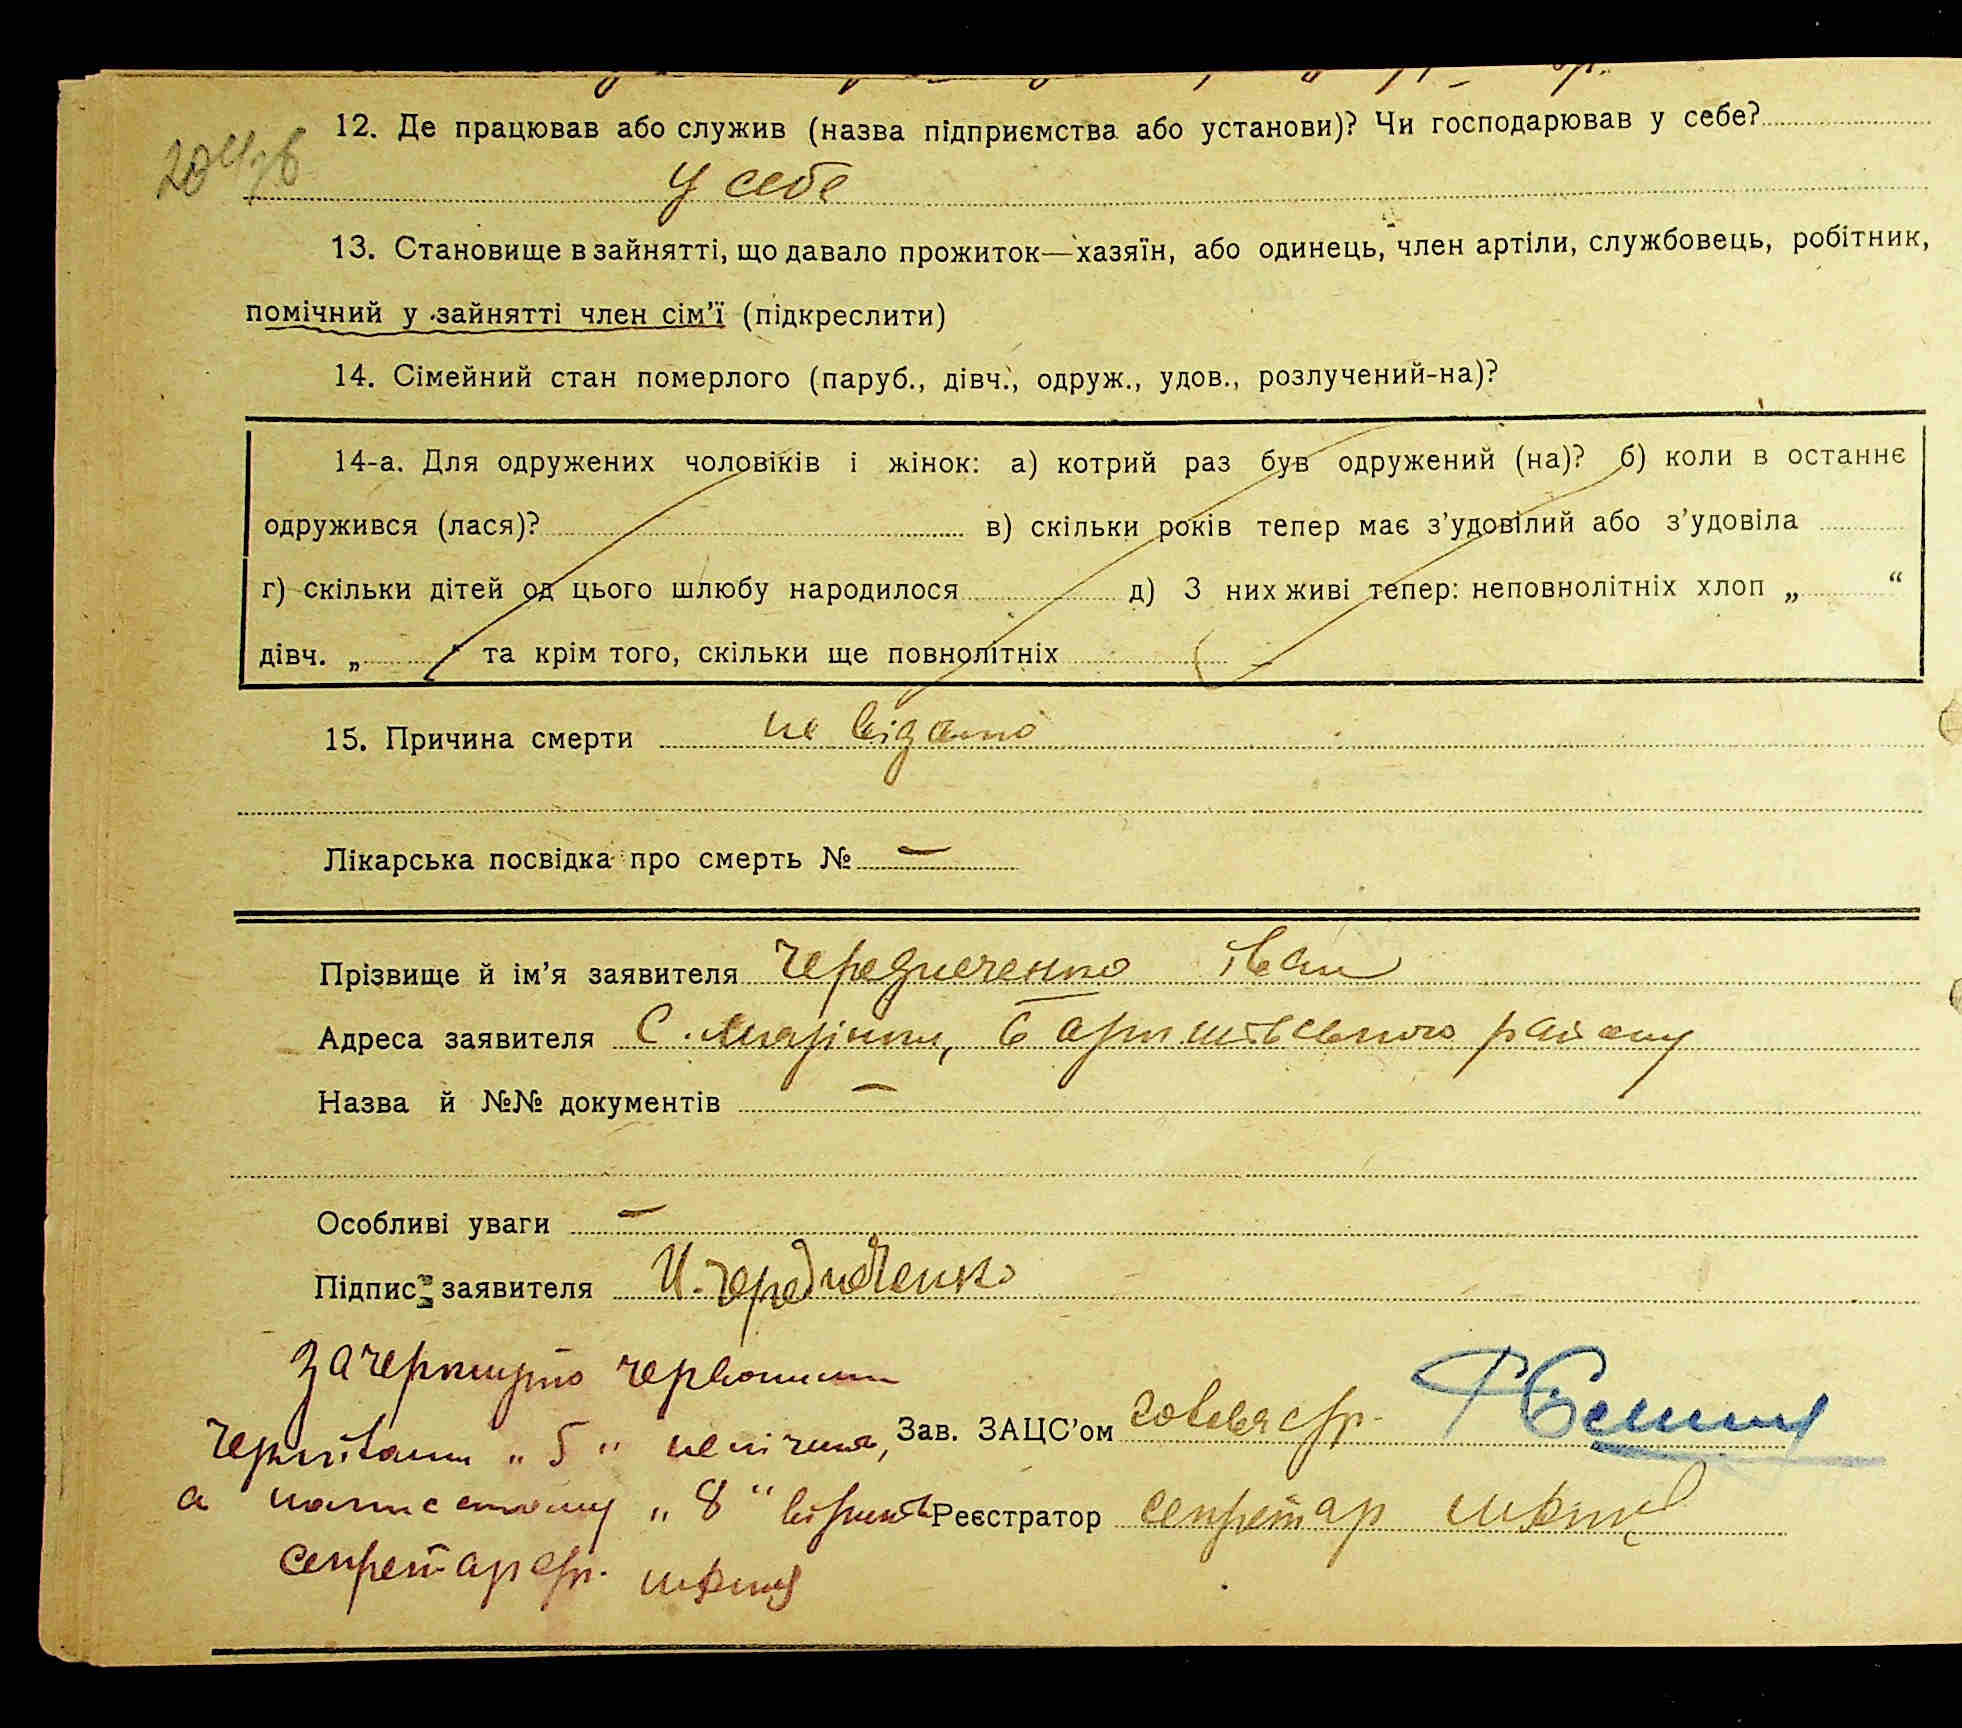 12. Де працював або служив (назва підприємства або установи)? Чи господарював у себе?
У себе
13. Становище в зайнятті, що давало прожиток—хазяїн, або одинець, член артіли, службовець, робітник,
помічний у зайнятті член сім’ї (підкреслити)
14. Сімейний стан померлого (паруб., дівч., одруж., удов., розлучений-на)?
14-а. Для одружених чоловіків і жінок: а) котрий раз був одружений (на)? б) коли в останнє
одружився (лася)? в) скільки років тепер має з’удовілий або з’удовіла
г) скільки дітей од цього шлюбу народилося д) З них живі тепер: неповнолітніх хлоп „ “
дівч. „ “ та крім того, скільки ще повнолітніх
15. Причина смерти не відомо
Лікарська посвідка про смерть № —
Прізвище й ім’я заявителя Чередниченко Іван
Адреса заявителя С. Баришівського району
Назва й №№ документів —
Особливі уваги —
Підпис заявителя И. Чередниченко
Зачеркнуто червоними
чернілами „5“ нелічити,
Зав. ЗАЦС’ом голова с/р.
а написаному „8“ вірить
Реєстратор секретар
секретар с/р.